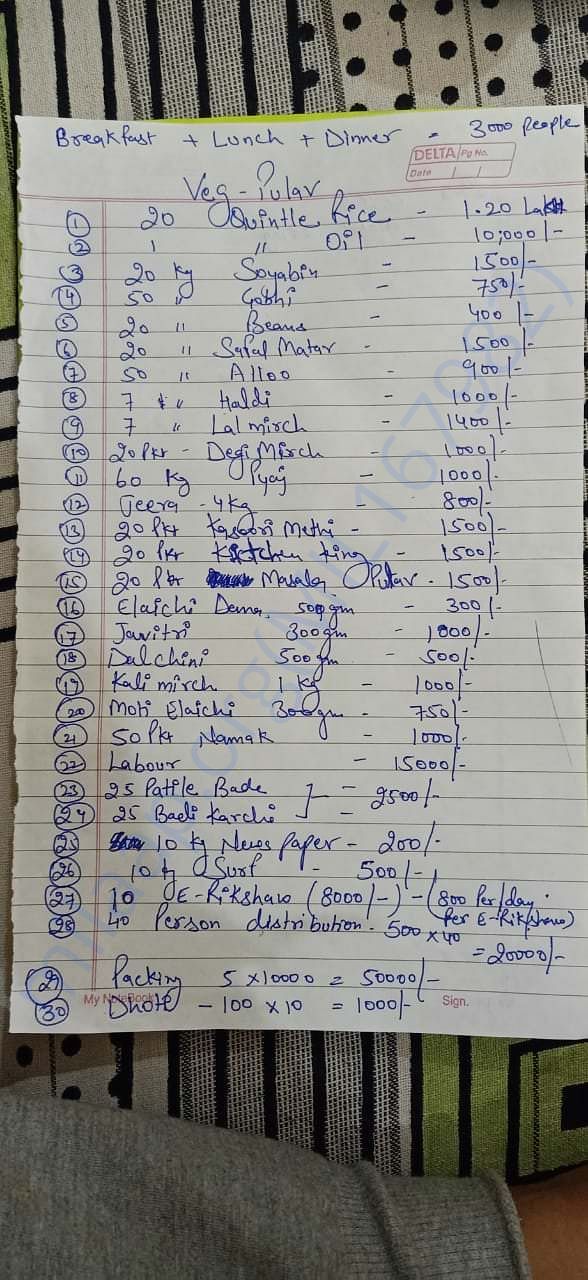 Breakfast + Lunch + Dinner - 3000 People
DELTA Pg No.
Date / /
Veg - Pulav
1 20 Quintle Rice - 1.20 Lakh
2 1 " Oil - 10,000/-
3 20 kg Soyabin - 1500/-
4 50 " Gobhi - 750/-
5 20 " Beans - 400/-
6 20 " Safal Matar - 1500/-
7 50 " Alloo - 900/-
8 7 " Haldi - 1000/-
9 7 " Lal mirch - 1400/-
10 20 Pkr - Degi Mirch - 1000/-
11 60 Kg Pyaj - 1000/-
12 Jeera - 4 kg - 800/-
13 20 Pkt Kasoori Methi - 1500/-
14 20 Pkr Kitchen King - 1500/-
15 20 Pkr Masala Pulav - 1500/-
16 Elaichi Dana 500 gm - 300/-
17 Javitri 300 gm - 1000/-
18 Dalchini 500 gm - 500/-
19 Kali mirch 1 kg - 1000/-
20 Moti Elaichi 300 gm - 750/-
21 50 Pkt Namak - 1000/-
22 Labour - 15000/-
23 25 Patile Bade -
24 25 Badi Karchi - 2500/-
25 10 kg News paper - 200/-
26 10 kg Surf - 500/-
27 10 E-Rikshaw (8000/-) - (800 Per/day.
Per E-Rikshaw)
28 40 Person distribution - 500 x 40
= 20000/-
29 Packing 5 x 10000 = 50000/-
30 Dhote - 100 x 10 = 1000/-
My NoteBook Sign.
milaap.org(MIL_167982)